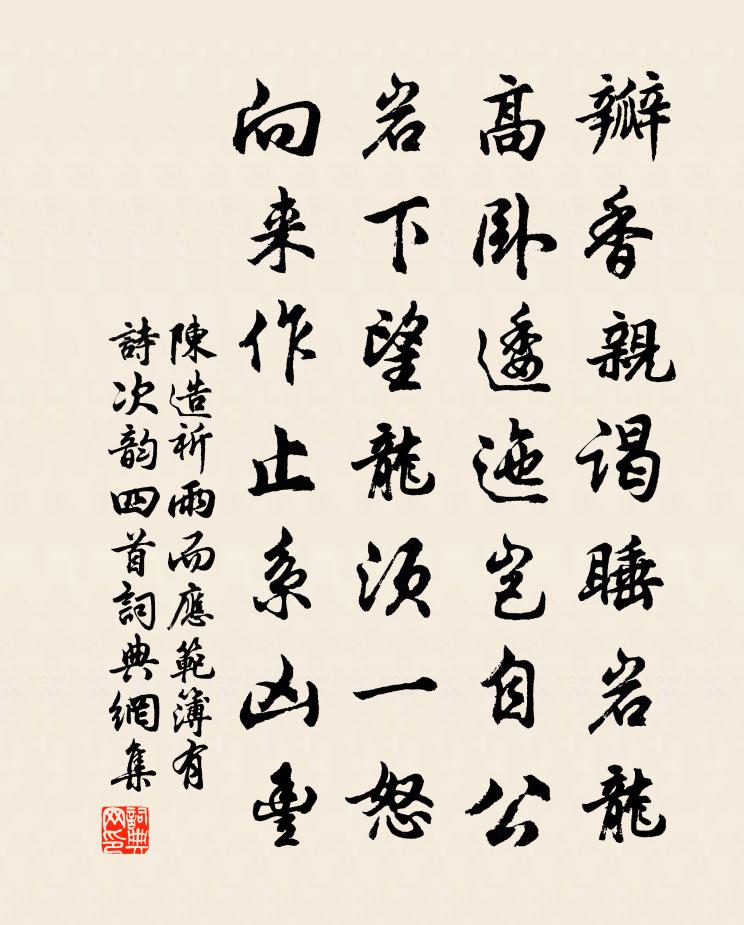 瓣香親謁睡岩龍
高卧逶迤豈自公
岩下望龍須一怒
向来作止系凶豐
陳造祈雨而應範簿有
詩次韵四首詞典網集
詞典网印